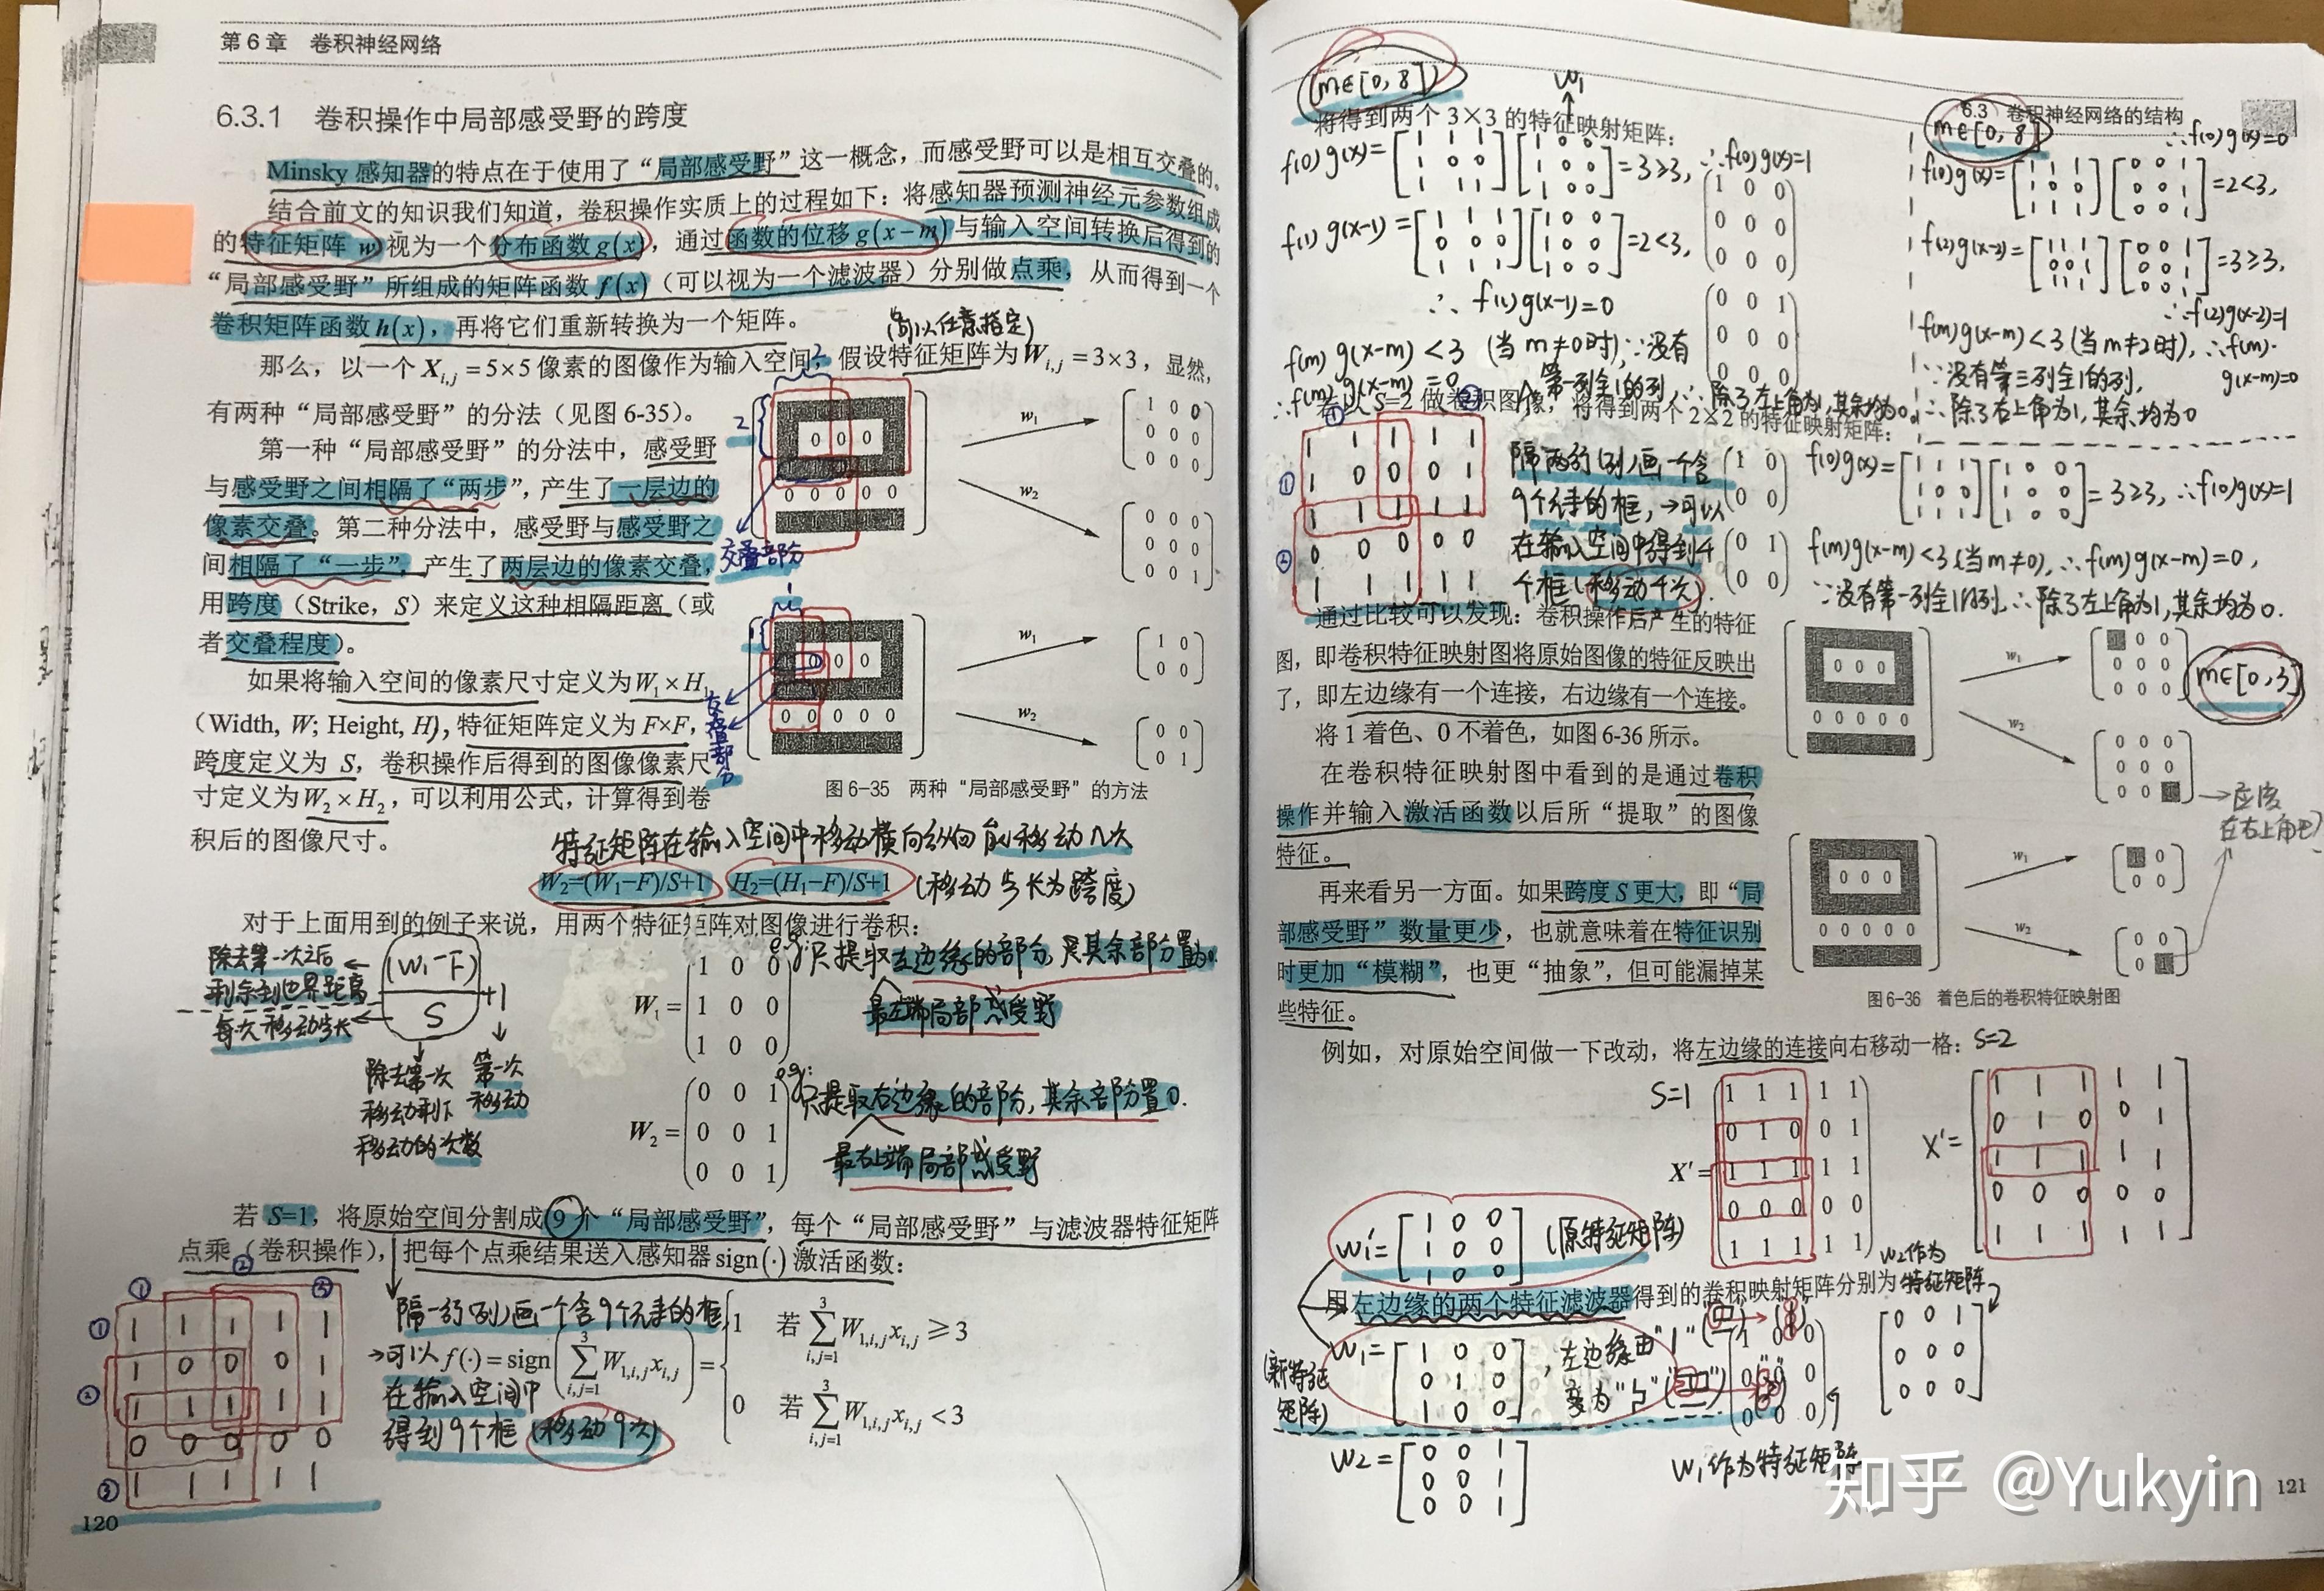 第6章 卷积神经网络
6.3.1 卷积操作中局部感受野的跨度
Minsky 感知器的特点在于使用了“局部感受野”这一概念，而感受野可以是相互交叠的。
结合前文的知识我们知道，卷积操作实质上的过程如下：将感知器预测神经元参数组成
的特征矩阵 w 视为一个分布函数 g(x)，通过函数的位移 g(x−m) 与输入空间转换后得到的
“局部感受野”所组成的矩阵函数 f(x)（可以视为一个滤波器）分别做点乘，从而得到一个
卷积矩阵函数 h(x)，再将它们重新转换为一个矩阵。
(可以任意指定)
那么，以一个 Xi,j = 5×5 像素的图像作为输入空间，假设特征矩阵为 Wi,j = 3×3，显然，
有两种“局部感受野”的分法（见图 6-35）。
第一种“局部感受野”的分法中，感受野
与感受野之间相隔了“两步”，产生了一层边的
像素交叠。第二种分法中，感受野与感受野之
间相隔了“一步”，产生了两层边的像素交叠，
用跨度（Strike，S）来定义这种相隔距离（或
者交叠程度）。
如果将输入空间的像素尺寸定义为W1×H1
（Width, W; Height, H），特征矩阵定义为 F×F，
跨度定义为 S，卷积操作后得到的图像像素尺
寸定义为W2×H2，可以利用公式，计算得到卷
积后的图像尺寸。
2
0 0 0
0 0 0 0 0
交叠部分
w1
1 0 0
0 0 0
0 0 0
w2
0 0 0
0 0 0
0 0 1
0 0 0 0 0
交叠部分
w1
1 0
0 0
w2
0 0
0 1
图 6-35 两种“局部感受野”的方法
特征矩阵在输入空间中移动横向纵向能移动几次
W2=(W1−F)/S+1 H2=(H1−F)/S+1 (移动步长为跨度)
对于上面用到的例子来说，用两个特征矩阵对图像进行卷积：
除去第一次之后
剩余到边界距离
每次移动步长
(W1−F)
S
+1
除去第一次
移动剩下
移动的次数
第一次
移动
W1 =
1 0 0
1 0 0
1 0 0
e.g: 只提取左边缘的部分,其余部分置为0.
最左端局部感受野
W2 =
0 0 1
0 0 1
0 0 1
e.g: 只提取右边缘的部分,其余部分置0.
最右端局部感受野
若 S=1，将原始空间分割成 9 个“局部感受野”，每个“局部感受野”与滤波器特征矩阵
点乘（卷积操作），把每个点乘结果送入感知器 sign(·) 激活函数：
① ② ③
① 1 1 1 1 1
1 0 0 0 1
② 1 1 1 1 1
0 0 0 0 0
③ 1 1 1 1 1
隔一行(列)画一个含9个元素的框
→可以
在输入空间中
得到9个框 (移动9次)
f(·) = sign(∑ W1,i,j xi,j) =
1 若 ∑ W1,i,j xi,j ⩾ 3
0 若 ∑ W1,i,j xi,j < 3
120
(m∈[0,8])
w1
6.3 卷积神经网络的结构
将得到两个 3×3 的特征映射矩阵：
f(0)g(x)= [1 1 1 1 0 0 1 1 1] [1 0 0 1 0 0 1 0 0] =3≥3, ∴f(0)g(x)=1
f(1)g(x-1)= [1 1 1 0 0 0 1 1 1] [1 0 0 1 0 0 1 0 0] =2<3,
∴ f(1)g(x-1)=0
f(m)g(x-m)<3 (当m≠0时), ∵没有
第一列全1的列, ∴除了左上角为1,其余均为0
∴f(m)g(x-m)=0
1 0 0
0 0 0
0 0 0
0 0 1
0 0 0
0 0 0
m∈[0,8]
∴f(0)g(x)=0
f(0)g(x)= [1 1 1 1 0 0 1 1 1] [0 0 1 0 0 1 0 0 1] =2<3,
f(2)g(x-2)= [1 1 1 0 0 1 1 1 1] [0 0 1 0 0 1 0 0 1] =3≥3,
∴f(2)g(x-2)=1
f(m)g(x-m)<3(当m≠2时), ∴f(m)·
g(x-m)=0
∵没有第三列全1的列,
∴除了右上角为1,其余均为0
S=2 做卷积图像，将得到两个 2×2 的特征映射矩阵：
1 1 1 1 1
1 0 0 0 1
1 1 1 1 1
0 0 0 0 0
1 1 1 1 1
隔两行(列)画一个含
9个元素的框,→可以
在输入空间中得到4
个框(移动4次).
1 0
0 0
0 1
0 0
f(0)g(x)= [1 1 1 1 0 0 1 1 1] [1 0 0 1 0 0 1 0 0] =3≥3, ∴f(0)g(x)=1
f(m)g(x-m)<3(当m≠0), ∴f(m)g(x-m)=0,
∵没有第一列全1的列, ∴除了左上角为1,其余均为0.
通过比较可以发现：卷积操作后产生的特征
图，即卷积特征映射图将原始图像的特征反映出
了，即左边缘有一个连接，右边缘有一个连接。
将 1 着色、0 不着色，如图 6-36 所示。
在卷积特征映射图中看到的是通过卷积
操作并输入激活函数以后所“提取”的图像
特征。
再来看另一方面。如果跨度 S 更大，即“局
部感受野”数量更少，也就意味着在特征识别
时更加“模糊”，也更“抽象”，但可能漏掉某
些特征。
0 0 0
0 0 0 0 0
w1
0 0
0 0 0
0 0 0
w2
0 0 0
0 0 0
0 0
m∈[0,3]
应该
在右上角吧?
0 0 0
w1
0
0 0
w2
0 0
0
图 6-36 着色后的卷积特征映射图
例如，对原始空间做一下改动，将左边缘的连接向右移动一格：
S=1
X′ =
1 1 1 1 1
0 1 0 0 1
1 1 1 1 1
0 0 0 0 0
1 1 1 1 1
S=2
X′=
1 1 1 1 1
0 1 0 0 1
1 1 1 1 1
0 0 0 0 0
1 1 1 1 1
w1′= [1 0 0 1 0 0 1 0 0] (原特征矩阵)
用左边缘的两个特征滤波器得到的卷积映射矩阵分别为
w2作为
特征矩阵
0 0 1
0 0 0
0 0 0
(新特征
矩阵)
w1= [1 0 0 0 1 0 1 0 0], 左边缘由
变为
1 0 0
0 0 0
0 0 0
w1作为特征矩阵
w2= [0 0 1 0 0 1 0 0 1]
知乎 @Yukyin
121